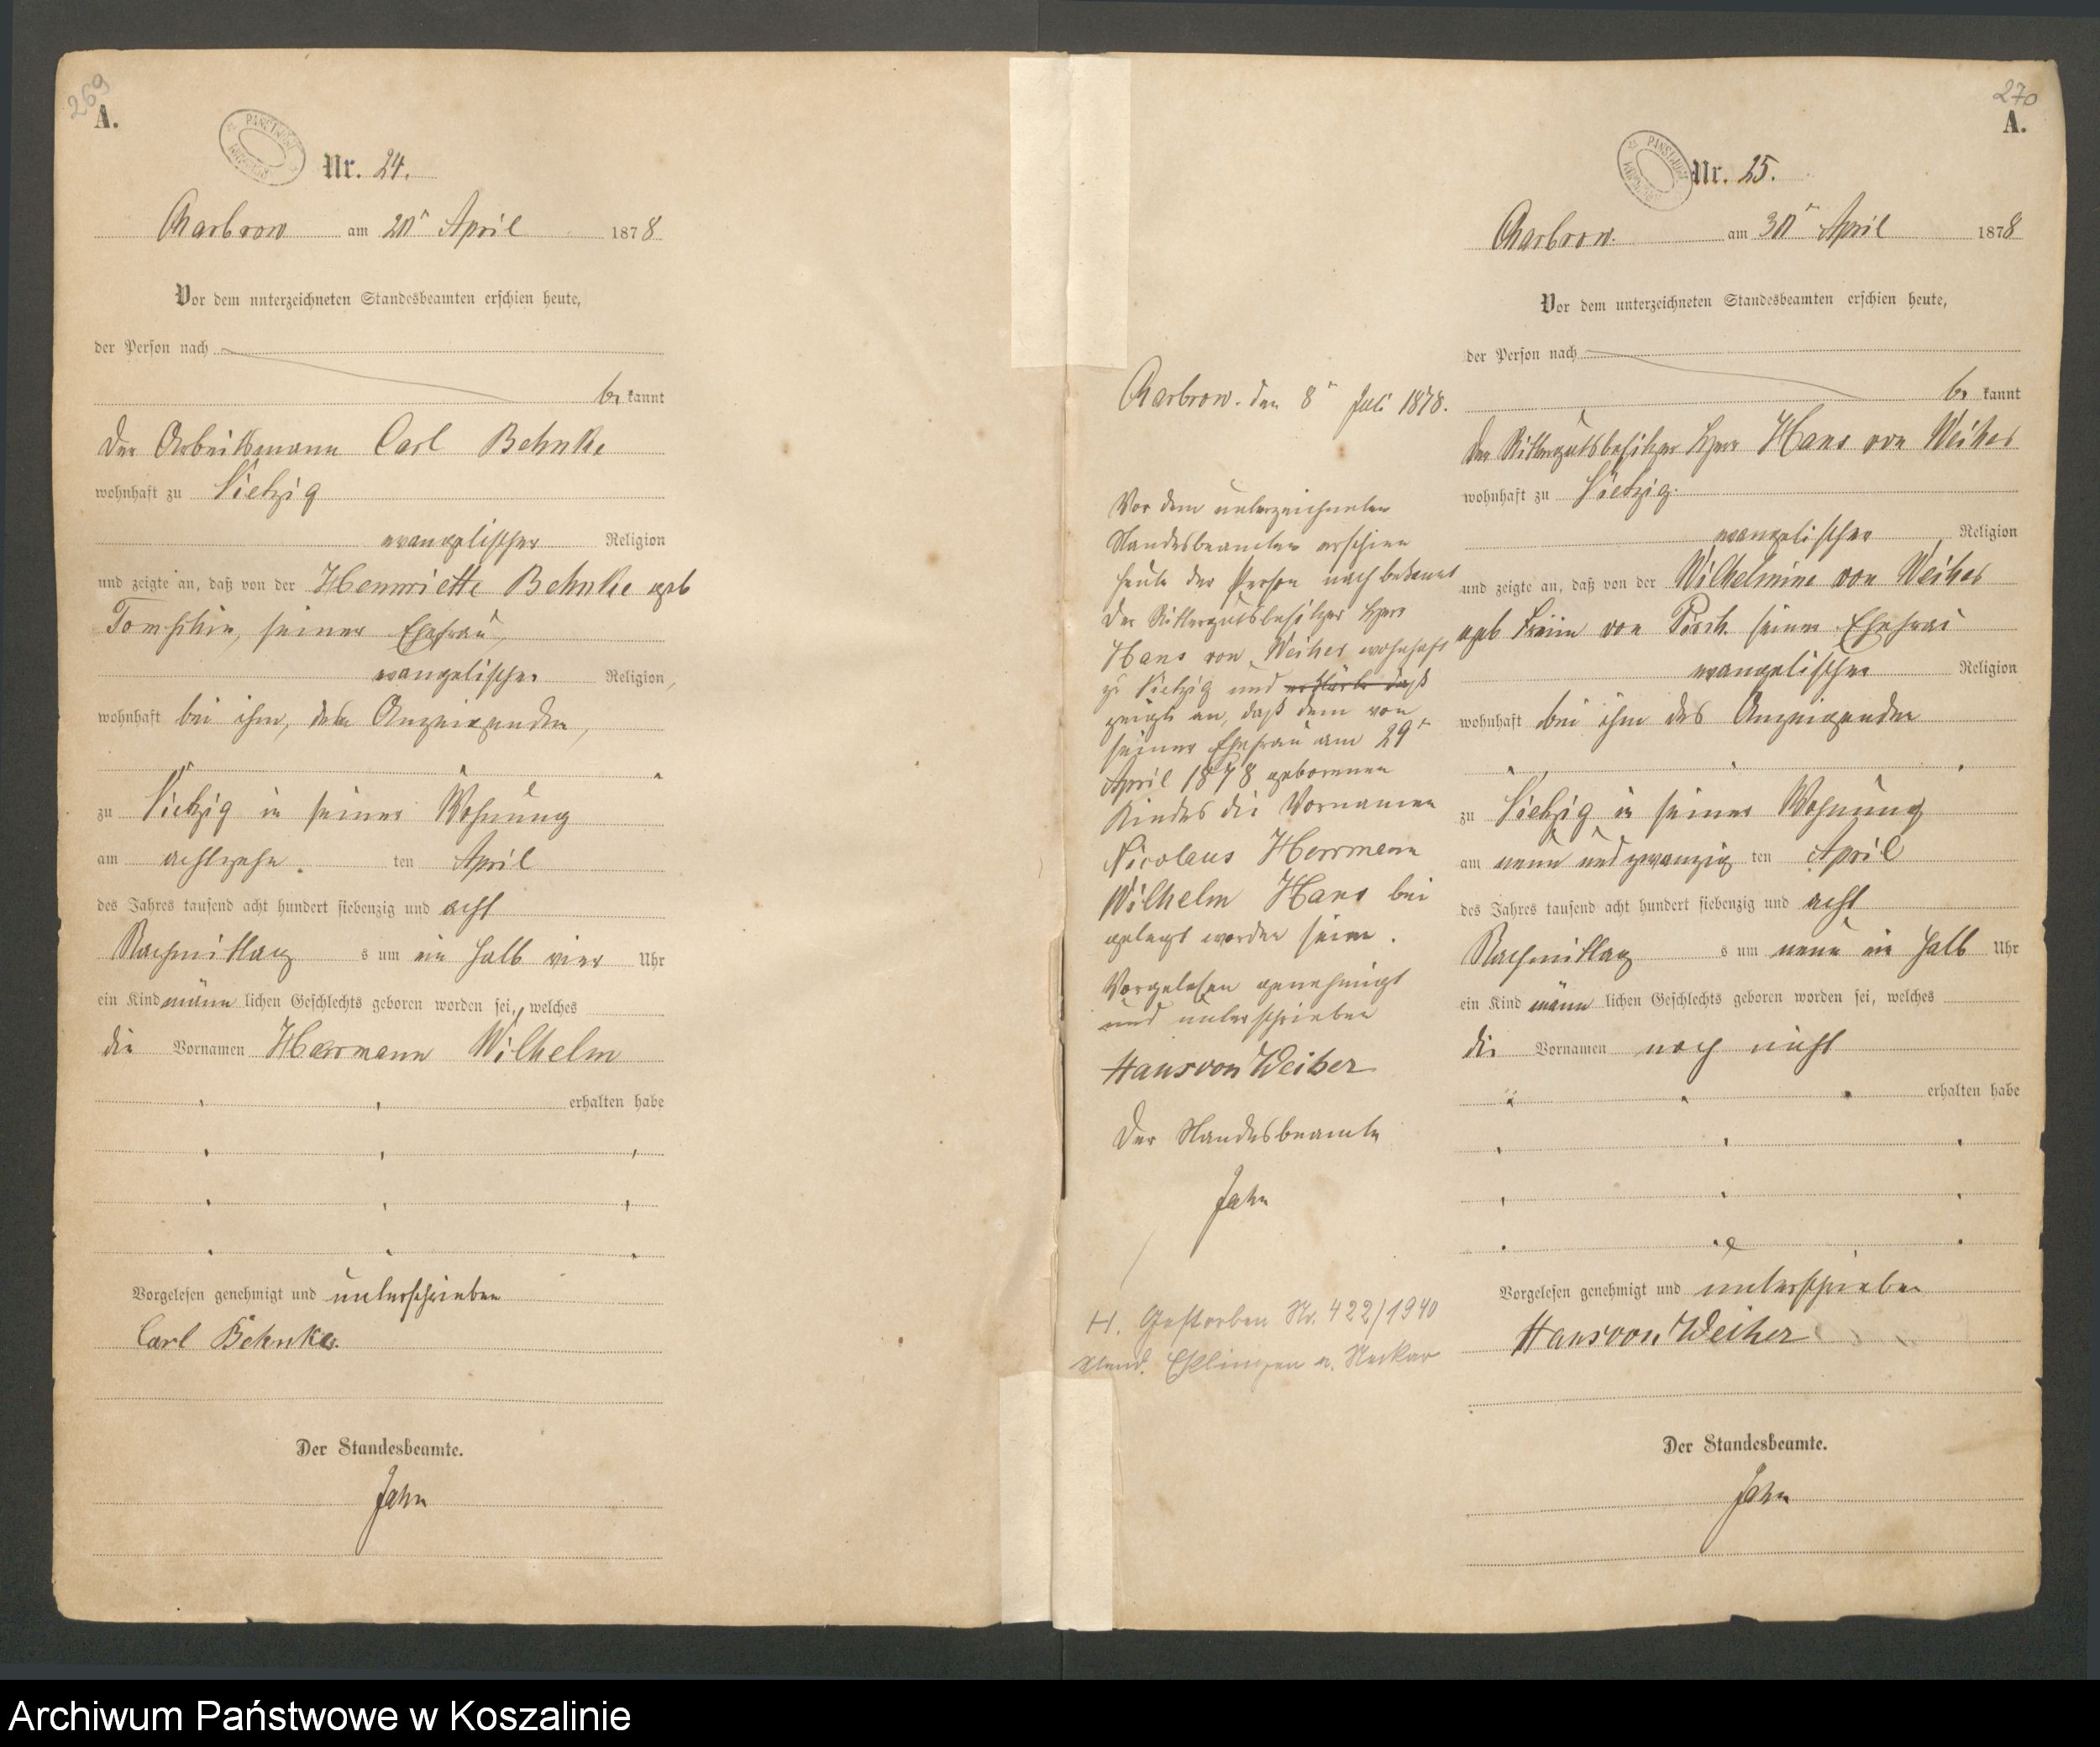 269
A.
Nr. 24.
Charbrow am 20ⁿ April 1878
Vor dem unterzeichneten Standesbeamten erschien heute,
der Person nach
be kannt
der Arbeitsmann Carl Behnke
wohnhaft zu Vietzig
evangelischer Religion
und zeigte an, daß von der Hennriette Behnke geb
seiner Ehefrau,
evangelischer Religion,
wohnhaft bei ihm, dem Anzeigenden,
zu Vietzig in seiner Wohnung
am achtzehn ten April
des Jahres tausend acht hundert siebenzig und acht
Nachmittag s um ein halb vier Uhr
ein Kind männ lichen Geschlechts geboren worden sei, welches
die Vornamen Herrmann Wilhelm
erhalten habe
Vorgelesen genehmigt und unterschrieben
Carl Behnke.
Der Standesbeamte.
Jahn
Charbrow. den 8ⁿ Juli 1878.
Vor dem unterzeichneten
Standesbeamten erschien
heute der Person nach bekannt
der Rittergutsbesitzer Herr
Hans von Weiher wohnhaft
zu Vietzig und erklärte daß
zeigte an, daß dem von
seiner Ehefrau am 29ⁿ
April 1878 geborenen
Kindes die Vornamen
Nicolaus Herrmann
Wilhelm Hans bei
gelegt worden seien.
Vorgelesen genehmigt
und unterschrieben
Hans von Weiher
Der Standesbeamte
Jahn
H. Gestorben Nr. 422/1940
Stand. Esslingen a. Neckar
270
A.
Nr. 25.
Charbrow. am 30ⁿ April 1878
Vor dem unterzeichneten Standesbeamten erschien heute,
der Person nach
be kannt
der Rittergutsbesitzer Herr Hans von Weiher
wohnhaft zu Vietzig.
evangelischer Religion
und zeigte an, daß von der Wilhelmine von Weiher
geb von seiner Ehefrau
evangelischer Religion
wohnhaft bei ihm des Anzeigenden
zu Vietzig in seiner Wohnung
am neun und zwanzig ten April
des Jahres tausend acht hundert siebenzig und acht
Nachmittag s um neun ein halb Uhr
ein Kind männ lichen Geschlechts geboren worden sei, welches
die Vornamen noch nicht
erhalten habe
Vorgelesen genehmigt und unterschrieben
Hans von Weiher
Der Standesbeamte.
Jahn
Archiwum Państwowe w Koszalinie